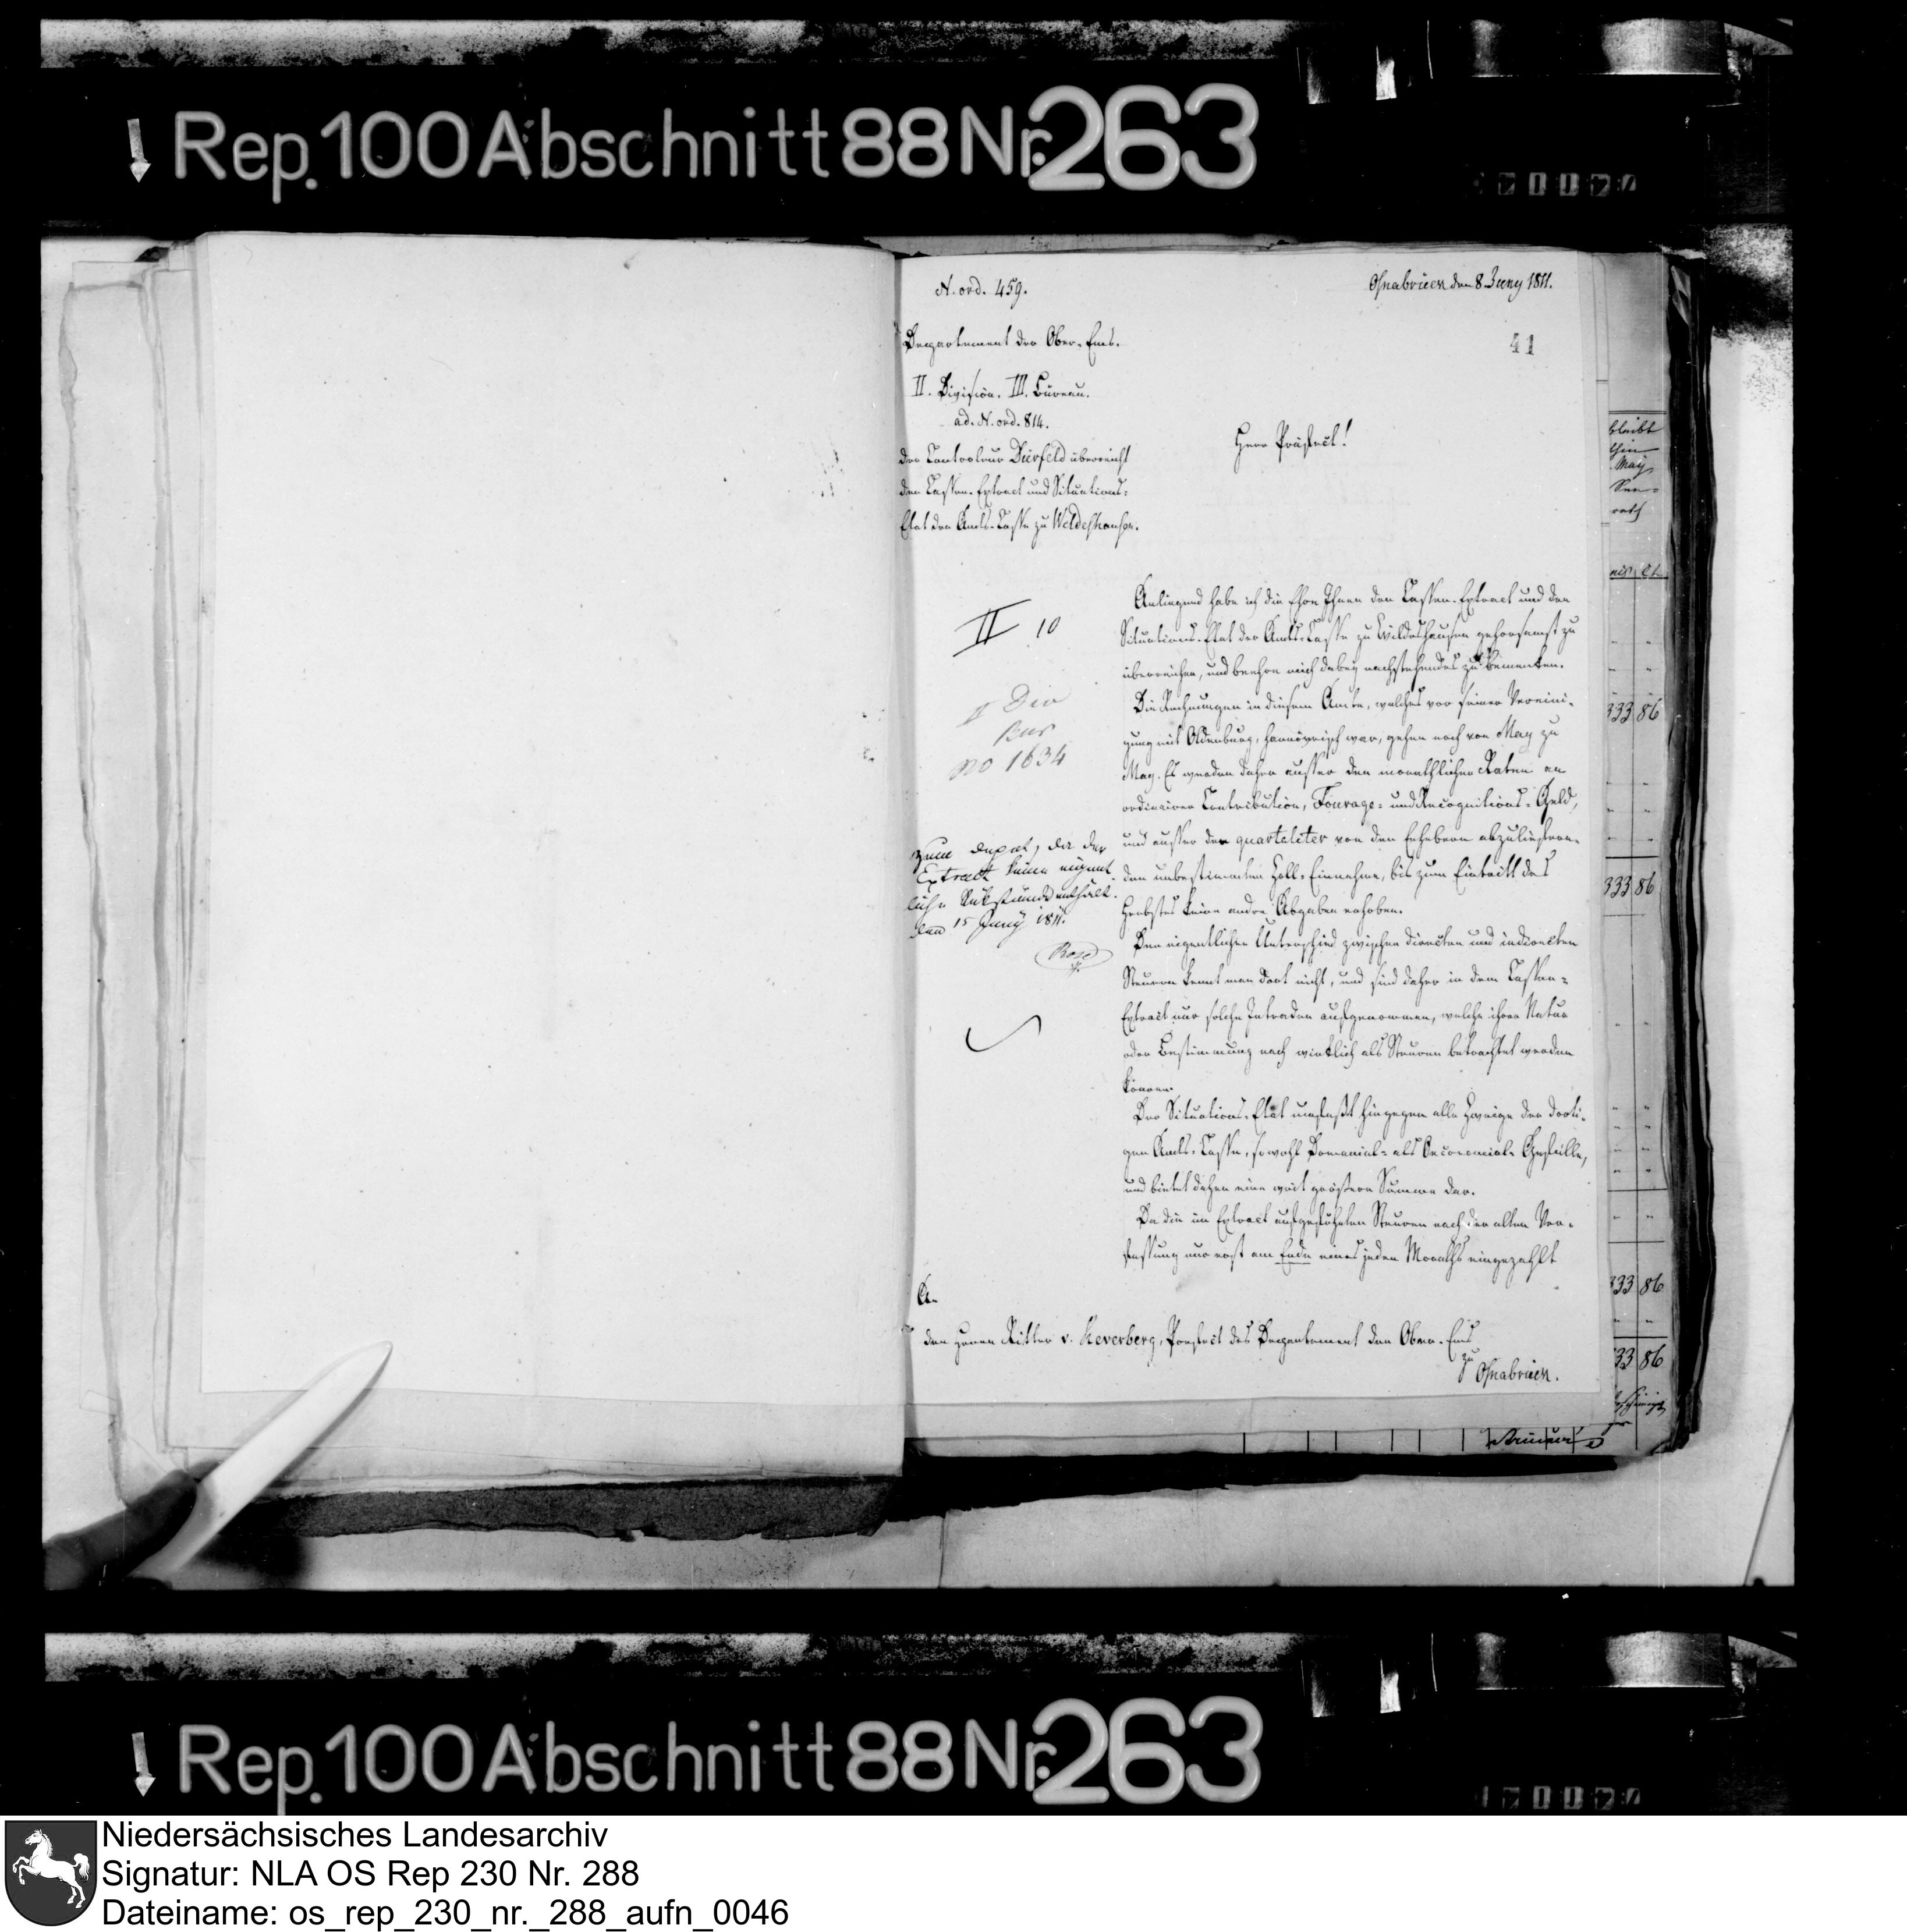 Rep. 100 Abschnitt 88 Nr. 263
N. ord. 459.
Osnabrück den 8 Juny 1811.
41
Departement der Ober-Ems.
II. Division. III. Büreau.
ad. N. ord. 814.
Herr Präfect!
Der Controleur Dürfeld überreicht
den Cassen-Extract und Situations-
Etat der Amts-Casse zu Wildeshausen.
Anliegend habe ich die Ehre Ihnen den Cassen-Extract und den
Situations-Etat der Amts-Casse zu Wildeshausen gehorsamst zu
überreichen, und beehre mich dabey nachstehendes zu bemerken.
Die Rechnungen in diesem Amte, welches vor seiner Vereini-
gung mit Oldenburg, hannövrisch war, gehen noch von May zu
May. Es werden daher ausser den monathlichen Raten an
ordinairer Contribution, Fourage- und Recognitions-Geld,
und ausser der quartaliter von den Erhebern abzuliefern-
den unbestimmten Zoll-Einnahme, bis zum Eintritt des
Herbstes keine andre Abgaben erhoben.
Den eigentlichen Unterschied zwischen directen und indirecten
Steuern kennt man dort nicht, und sind daher in dem Cassen-
Extract nur solche Intraden aufgenommen, welche ihrer Natur
oder Bestimmung nach wirklich als Steuern betrachtet werden
können.
Der Situations-Etat umfaßt hingegen alle Zweige der dorti-
gen Amts-Casse, sowohl Domanial- als Oeconomial-Gefälle,
und bietet daher eine weit größere Summe dar.
Da die im Extract aufgeführten Steuern nach der alten Ver-
fassung nur erst am Ende eines jeden Monaths eingezahlt
II 10
II Div
no 1634
zum deposit, da der
Extract keine eigent-
liche Rükstände enthält.
den 15 Juny 1811.
Rose
An
den Herrn Ritter v. Keverberg, Praefect des Departement der Ober-Ems
zu
Osnabrück.
bleibt
May
333 86
333 86
333 86
33 86
Rep. 100 Abschnitt 88 Nr. 263
Niedersächsisches Landesarchiv
Signatur: NLA OS Rep 230 Nr. 288
Dateiname: os_rep_230_nr._288_aufn_0046